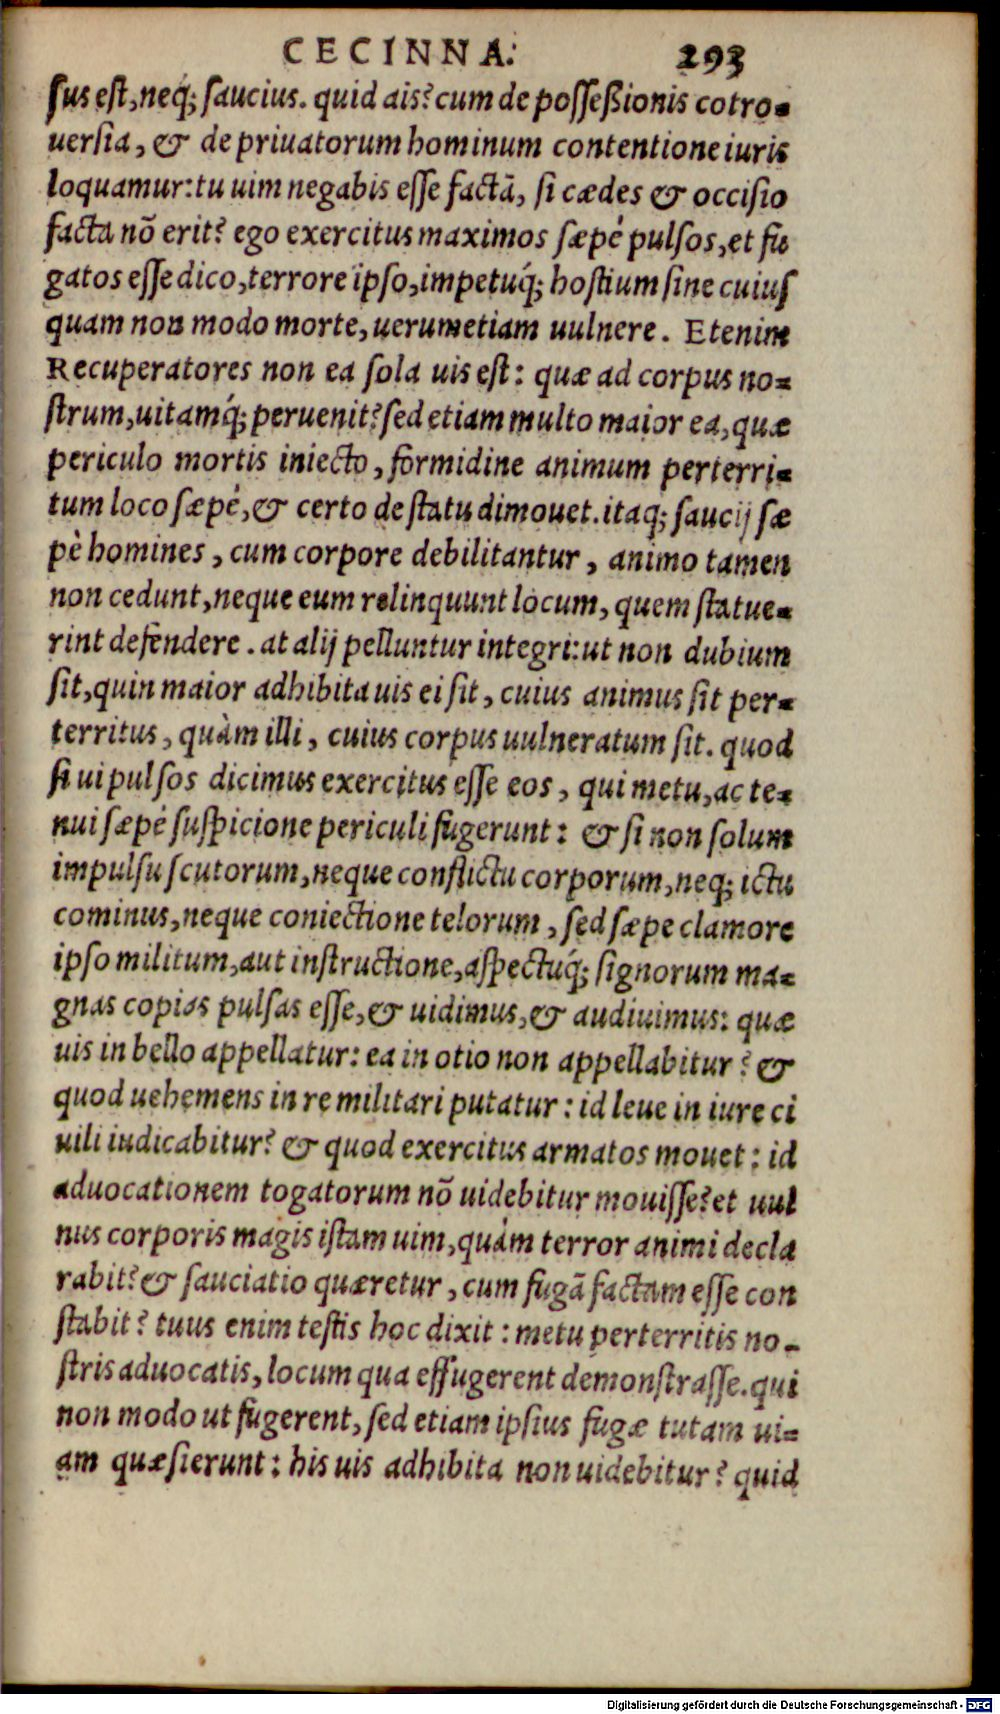 CECINNA. 293
sus est, neq́; saucius. quid ais? cum de possessionis cōtro-
uersia, & de priuatorum hominum contentione iuris
loquamur: tu uim negabis esse factā, si cædes & occisio
facta nō erit? ego exercitus maximos sæpè pulsos, et fu
gatos esse dico, terrore ipso, impetuq́; hostium sine cuius
quam non modo morte, uerumetiam uulnere. Etenim
Recuperatores non ea sola uis est: quæ ad corpus no-
strum, uitamq́; peruenit? sed etiam multo maior ea, quæ
periculo mortis iniecto, formidine animum perterri-
tum loco sæpè, & certo de statu dimouet. itaq; saucij sæ
pè homines, cum corpore debilitantur, animo tamen
non cedunt, neque eum relinquunt locum, quem statue-
rint defendere. at alij pelluntur integri: ut non dubium
sit, quin maior adhibita uis ei sit, cuius animus sit per-
territus, quàm illi, cuius corpus uulneratum sit. quod
si ui pulsos dicimus exercitus esse eos, qui metu, ac te-
nui sæpè suspicione periculi fugerunt: & si non solum
impulsu scutorum, neque conflictu corporum, neq; ictu
cominus, neque coniectione telorum, sed sæpe clamore
ipso militum, aut instructione, aspectuq́; signorum ma-
gnas copias pulsas esse, & uidimus, & audiuimus: quæ
uis in bello appellatur: ea in otio non appellabitur? &
quod uehemens in re militari putatur: id leue in iure ci
uili iudicabitur? & quod exercitus armatos mouet: id
aduocationem togatorum nō uidebitur mouisse? et uul
nus corporis magis istam uim, quàm terror animi decla
rabit? & sauciatio quæretur, cum fugā factam esse con
stabit? tuus enim testis hoc dixit: metu perterritis no-
stris aduocatis, locum qua effugerent demonstrasse. qui
non modo ut fugerent, sed etiam ipsius fugæ tutam ui-
am quæsierunt: his uis adhibita non uidebitur? quid
Digitalisierung gefördert durch die Deutsche Forschungsgemeinschaft - DFG